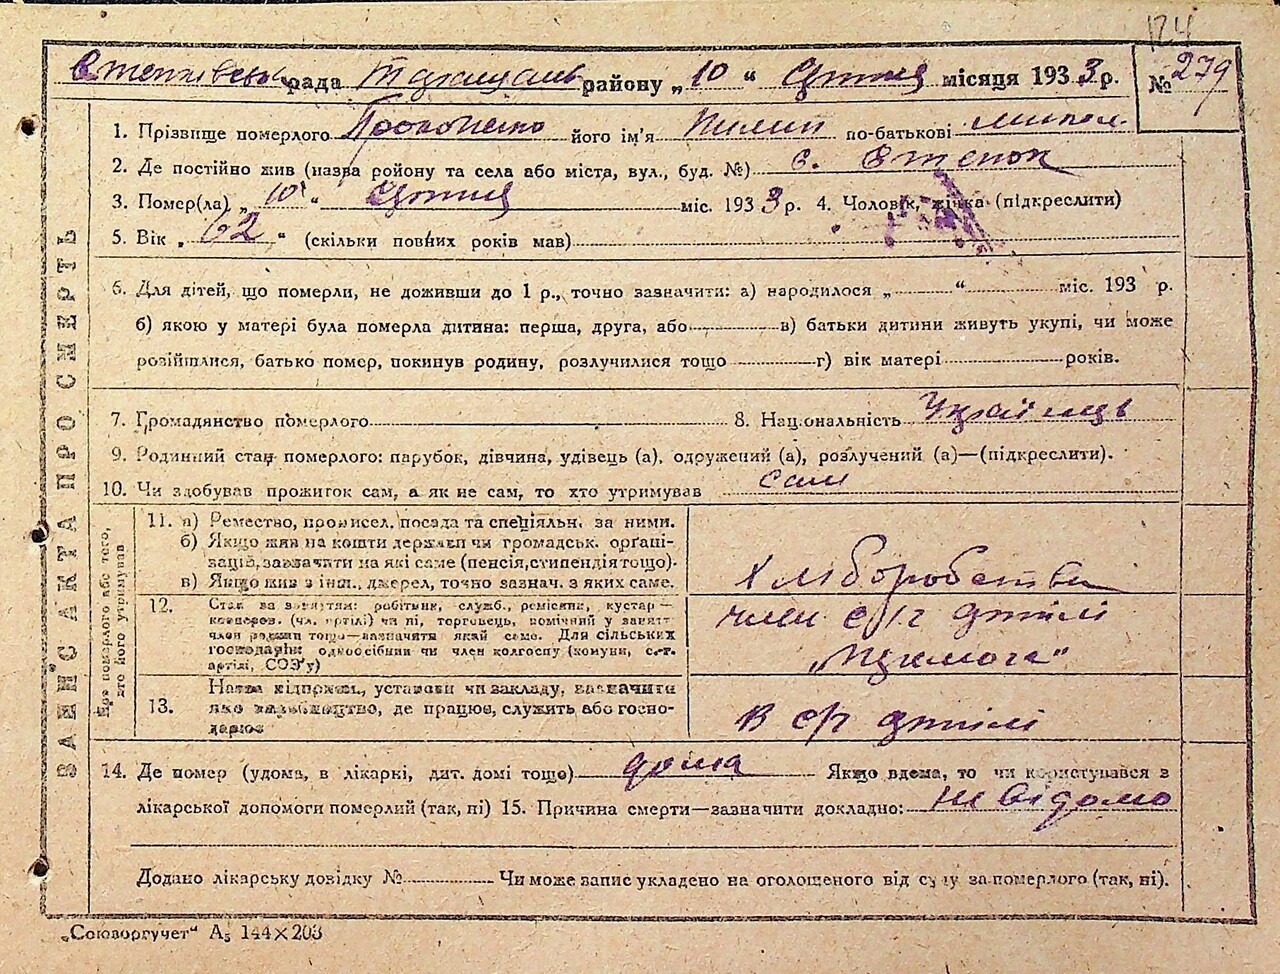 124
рада району „10“ місяця 1933 р. № 279
1. Прізвище померлого його ім'я Пилип по-батькові
2. Де постійно жив (назва району та села або міста, вул., буд. №) с. Степок
3. Помер(ла) „10“ міс. 1933 р. 4. Чоловік, жінка (підкреслити)
5. Вік „62“ (скільки повних років мав)
6. Для дітей, що померли, не доживши до 1 р., точно зазначити: а) народилося „ “ міс. 193 р.
б) якою у матері була померла дитина: перша, друга, або в) батьки дитини живуть укупі, чи може
розійшлися, батько помер, покинув родину, розлучилися тощо г) вік матері років.
7. Громадянство померлого 8. Національність Українець
9. Родинний стан померлого: парубок, дівчина, удівець (а), одружений (а), розлучений (а)—(підкреслити).
10. Чи здобував прожиток сам, а як не сам, то хто утримував сам
ЗАПИС АКТА ПРО СМЕРТЬ
Про померлого або того,
хто його утримував
11. а) Ремество, промисел, посада та спеціяльн. за ними.
б) Якщо жив на кошти держави чи громадськ. орґані-
зацій, зазначити на які саме (пенсія, стипендія тощо).
в) Якщо жив з інш. джерел, точно зазнач. з яких саме.
Хліборобство
12. Стан за заняттям: робітник, служб., ремісник, кустар—
коопров. (чл. артілі) чи ні, торговець, помічний у занятт
член родини тощо—зазначити який саме. Для сільських
господарів: одноосібник чи член колгоспу (комуни, с.-г.
артілі, СОЗ'у)
член с/г артілі
13. Назва підприєм., установи чи закладу, зазначити
яке виробництво, де працює, служить або госпо-
дарює
В с/г артілі
14. Де помер (удома, в лікарні, дит. домі тощо) дома Якщо вдома, то чи користувався з
лікарської допомоги померлий (так, ні) 15. Причина смерти—зазначити докладно: не відомо
Додано лікарську довідку № Чи може запис укладено на оголошеного від суду за померлого (так, ні).
„Союзоргучет“ А₅ 144×203